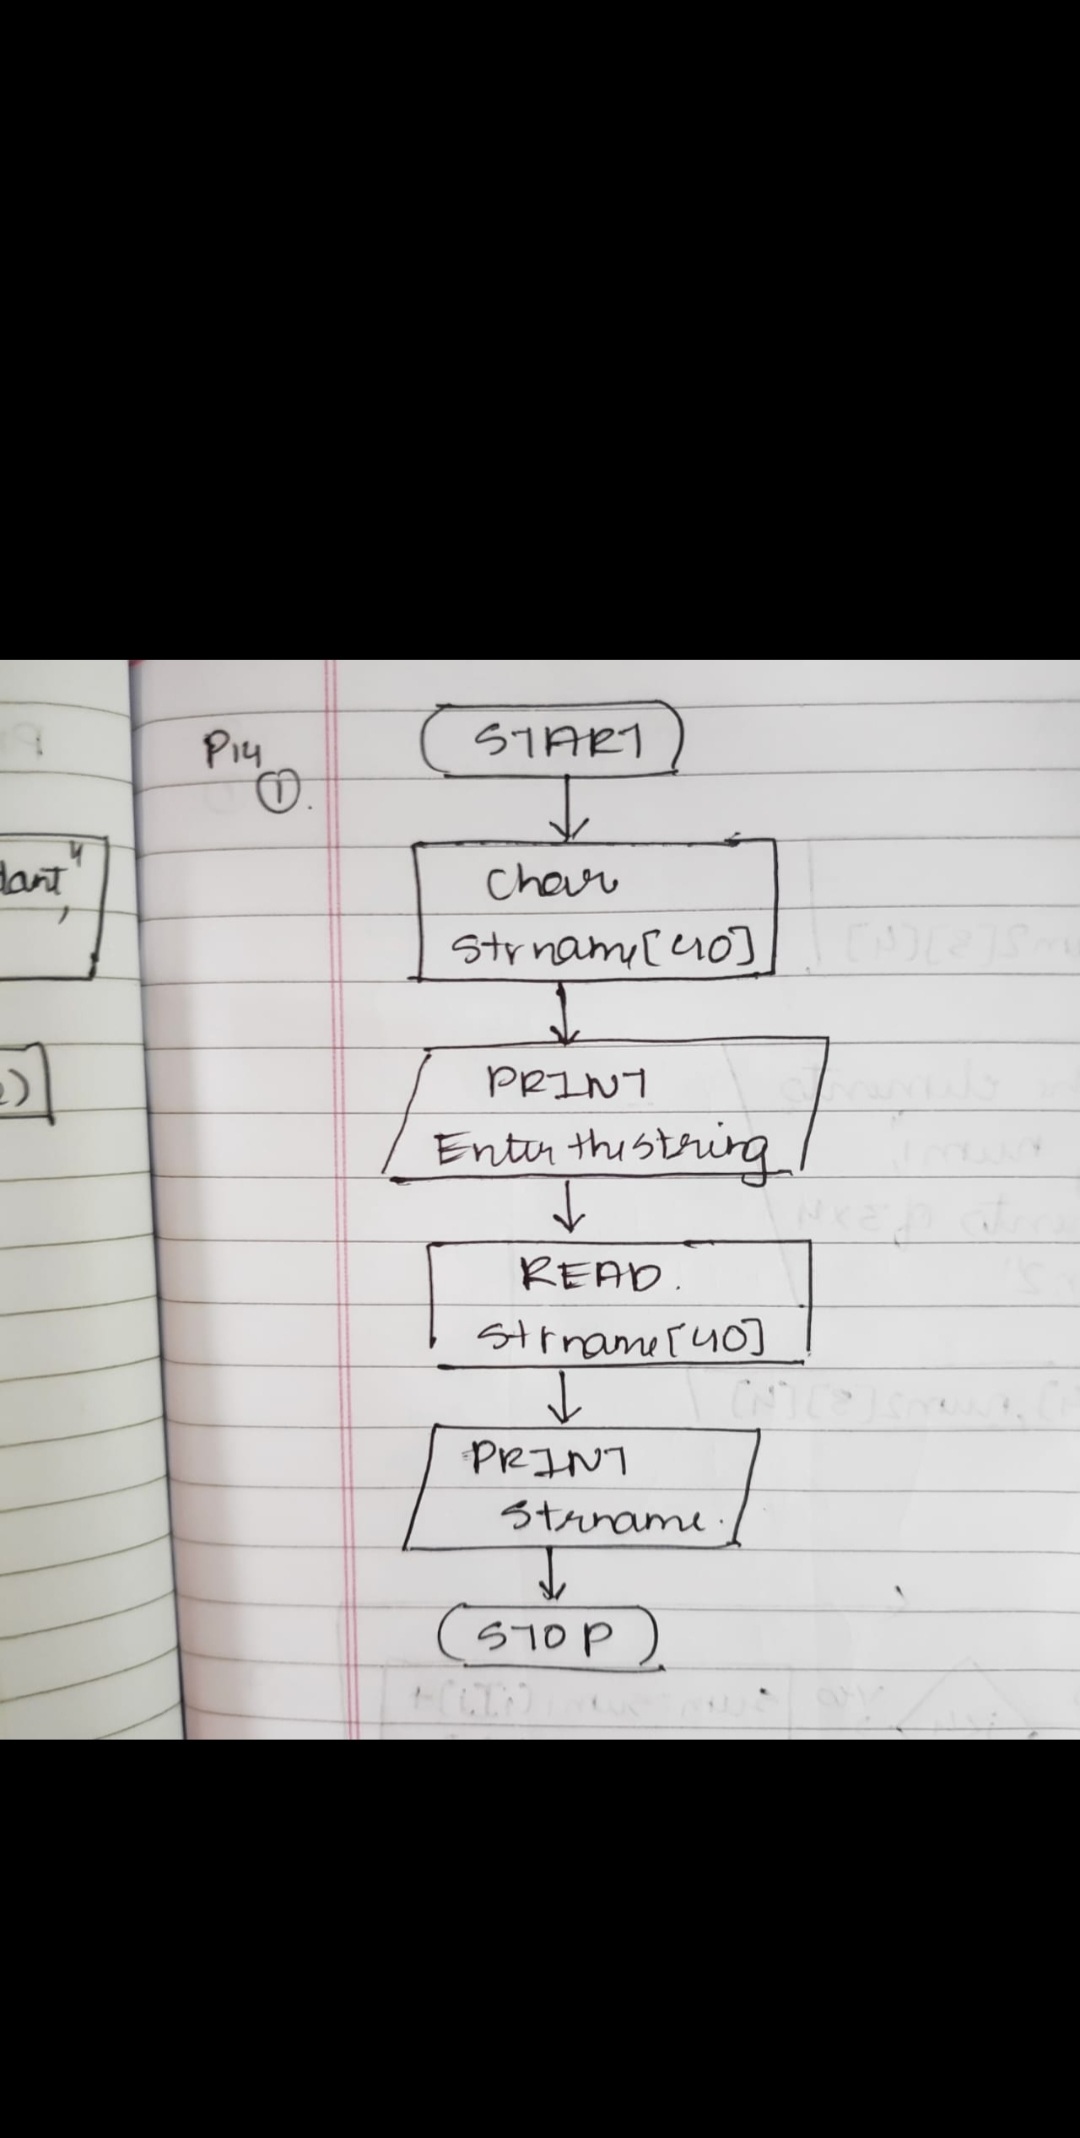 P14
①.
START
Char
Strname[40]
PRINT
Enter the string
READ.
Strname[40]
PRINT
Strname.
STOP
dant",
)